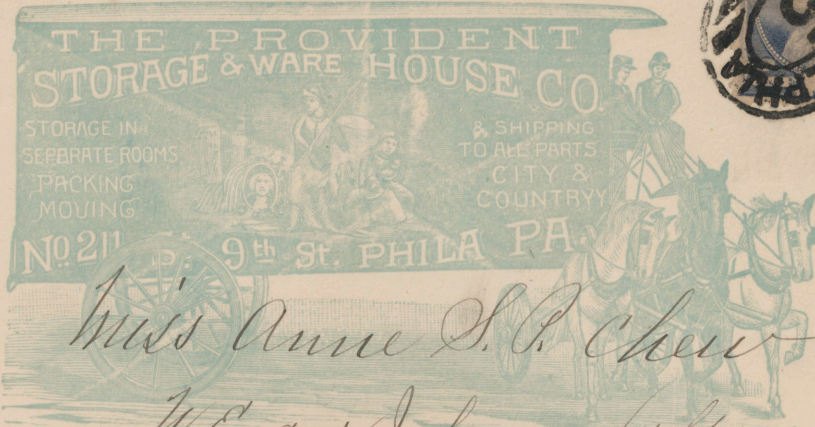 THE PROVIDENT
STORAGE & WARE HOUSE CO.
STORAGE IN
SEPARATE ROOMS
PACKING
MOVING
& SHIPPING
TO ALL PARTS
CITY &
COUNTRY
No 211 S. 9th St. PHILA PA.
PHILA
Miss Anne S. P. Chew